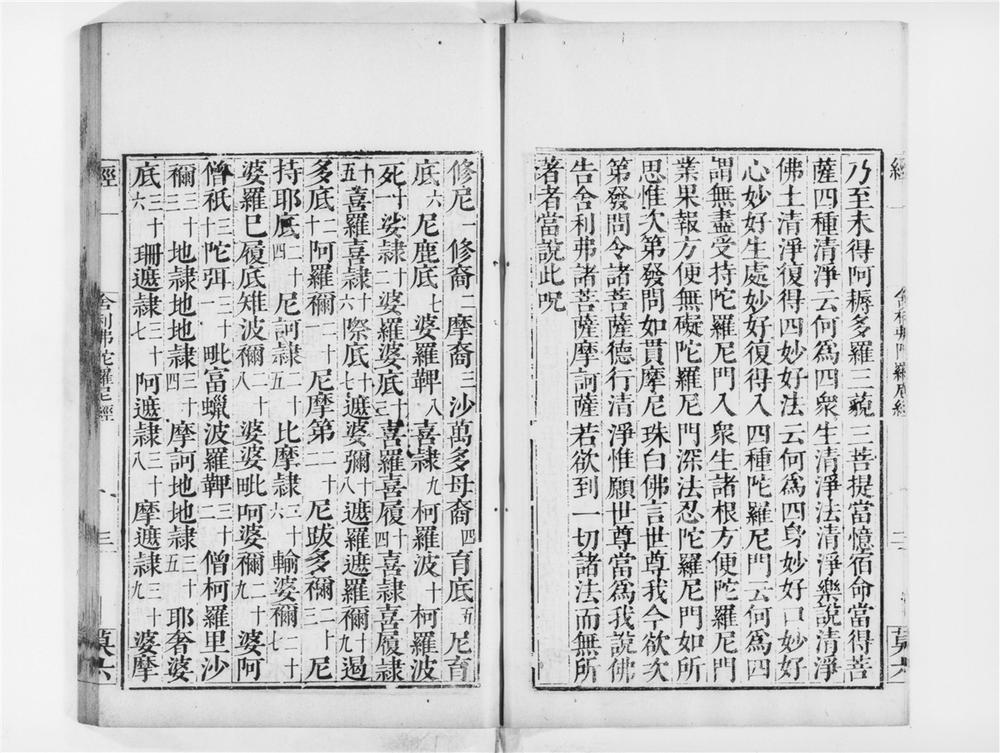 經 一 舍利弗陀羅尼經 三 莫六
乃至未得阿耨多羅三藐三菩提當憶宿命當得菩
薩四種清淨云何為四衆生清淨法清淨樂說清淨
佛土清淨復得四妙好法云何為四身妙好口妙好
心妙好生處妙好復得入四種陀羅尼門云何為四
謂無盡受持陀羅尼門入衆生諸根方便陀羅尼門
業果報方便無礙陀羅尼門深法忍陀羅尼門如所
思惟次第發問如貫摩尼珠白佛言世尊我今欲次
第發問令諸菩薩德行清淨惟願世尊當為我說佛
告舍利弗諸菩薩摩訶薩若欲到一切諸法而無所
著者當說此呪
修尼一修裔二摩裔三沙萬多母裔四育底五尼育
底六尼鹿底七婆羅鞞八喜隸九柯羅波十柯羅波
死十一娑隸十二婆羅婆底十三喜羅喜履十四喜隸喜履隸
十五喜羅喜隸十六際底十七遮婆彌十八遮羅遮羅禰十九遏
多底二十阿羅禰二十一尼摩第二十二尼跋多禰二十三尼
持耶底二十四尼訶隸二十五比摩隸二十六輸婆禰二十七
婆羅巳履底雉波禰二十八婆婆毗呵婆禰二十九婆阿
僧祇三十陀弭三十一毗富蠟波羅鞞三十二僧柯羅里沙
禰三十三地隸地地隸三十四摩訶地地隸三十五耶奢婆
底三十六珊遮隸三十七阿遮隸三十八摩遮隸三十九婆摩
經 一 舍利弗陀羅尼經 三 莫六